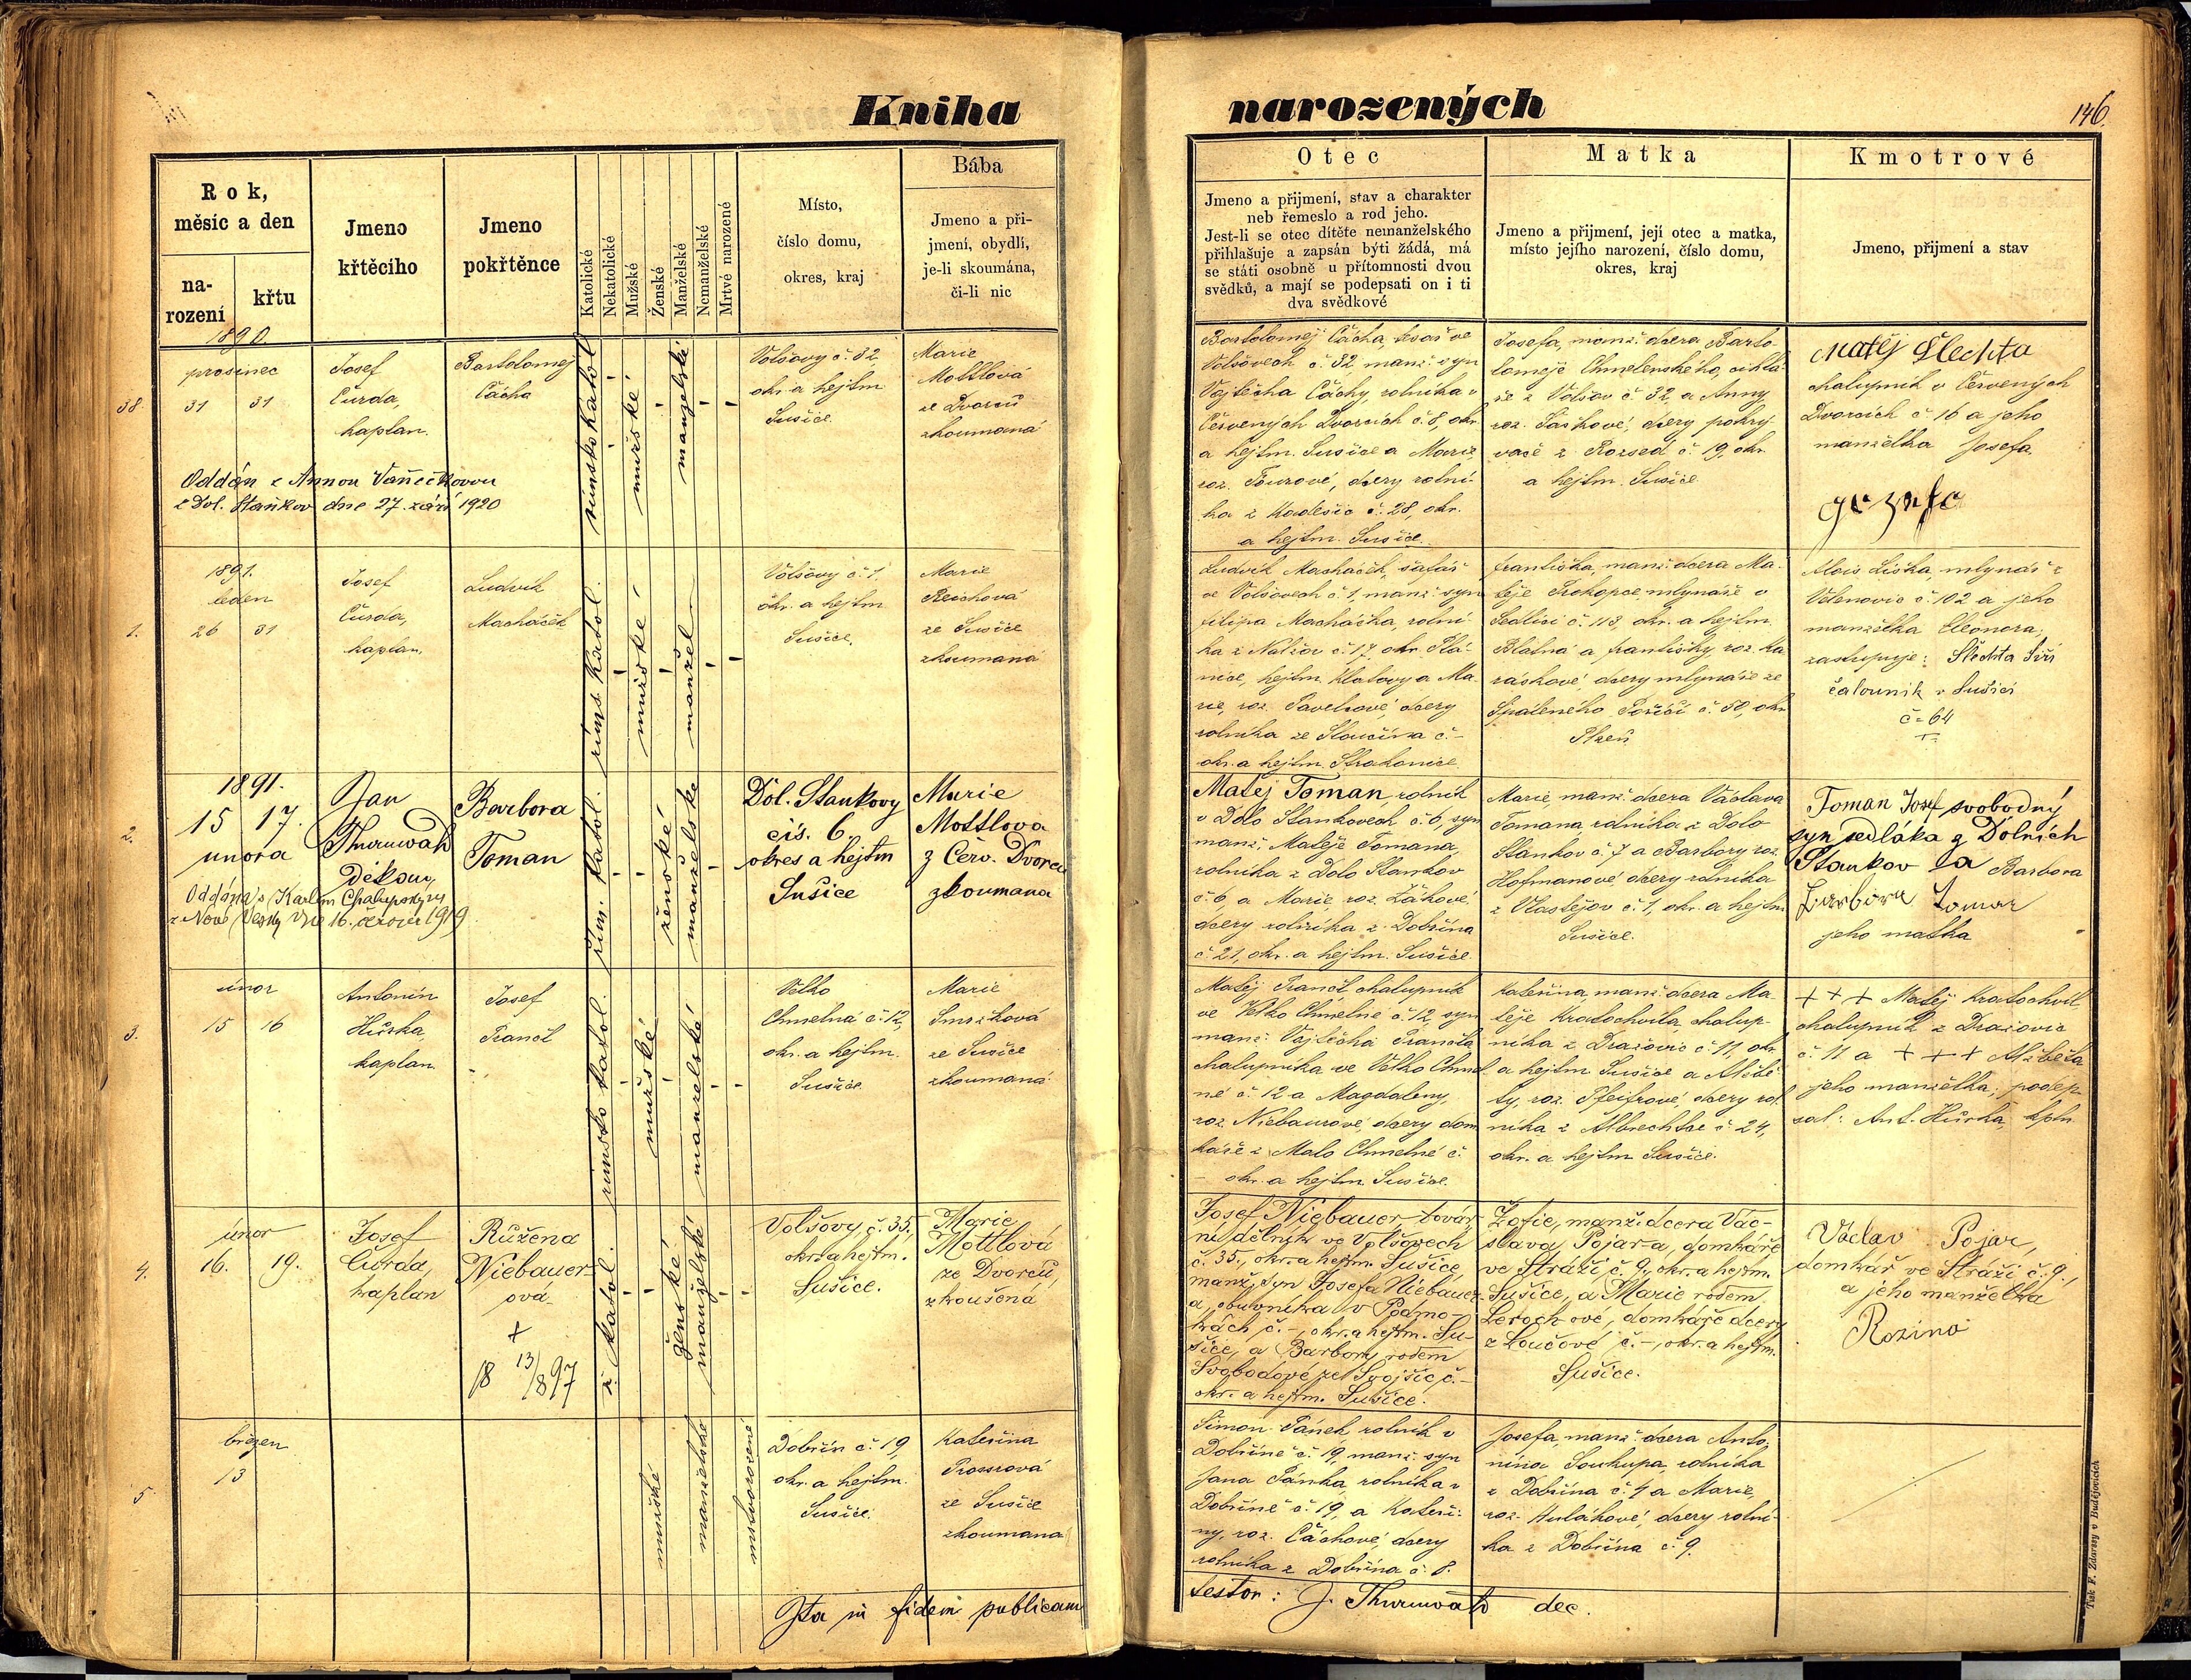 Kniha
narozených
146.
Rok,
měsíc a den
na-
rození
křtu
Jmeno
křtěcího
Jmeno
pokřtěnce
Katolické
Nekatolické
Mužské
Ženské
Manželské
Nemanželské
Mrtvé narozené
Místo,
číslo domu,
okres, kraj
Bába
Jmeno a při-
jmení, obydlí,
je-li skoumána,
či-li nic
Otec
Jmeno a přijmení, stav a charakter
neb řemeslo a rod jeho.
Jest-li se otec dítěte nemanželského
přihlašuje a zapsán býti žádá, má
se státi osobně u přítomnosti dvou
svědků, a mají se podepsati on i ti
dva svědkové
Matka
Jmeno a přijmení, její otec a matka,
místo jejího narození, číslo domu,
okres, kraj
Kmotrové
Jmeno, přijmení a stav
1890.
38.
prosinec
31 31
Josef
Čurda,
kaplan.
Bartolomej
Čácha
římsko katol.
mužské
manželské
Volšovy č. 32
okr. a hejtm
Sušice.
Marie
Mottlová
ze Dvorců
zkoumaná
Oddán s Annou Vaněčkovou
z Dol. Staňkov dne 27. září 1920
Bartoloměj Čácha, tesař ve
Volšovech č. 32, manž. syn
Vojtěcha Čáchy, rolníka v
Červených Dvorcích č. 8, okr.
a hejtm. Sušice a Marie,
roz. Tourové, dcery rolní-
ka z Kadešic č. 28, okr.
a hejtm. Sušice.
Josefa, manž. dcera Barto-
loměje Chmelenského, cihlá-
ře z Volšov č. 32, a Anny,
roz. Šaškové, dcery pokrý-
vače z Rozsed č. 19, okr.
a hejtm. Sušice
Matěj Šlechta
chalupník v Červených
Dvorcích č. 16 a jeho
manželka Josefa.
Jozefa
1891.
1.
leden
26 31
Josef
Čurda,
kaplan.
Ludvík
Macháček
říms. katol.
mužské
manžel.
Volšovy č. 1.
okr. a hejtm
Sušice.
Marie
Reichová
ze Sušice
zkoumaná
Ludvík Macháček, šafář
ve Volšovech č. 1, manž. syn
Filipa Macháčka, rolní-
ka z Nalžov č. 17, okr. Plá-
nice, hejtm. Klatovy a Ma-
rie, roz. Pavelcové, dcery
rolníka ze Slaučína č. -
okr. a hejtm. Strakonice.
Františka, manž. dcera Ma-
těje Prokopce, mlynáře v
Sedlici č. 113, okr. a hejtm.
Blatná a Františky, roz. Ka
ráskové, dcery mlynáře ze
Spáleného Poříčí č. 50, okr.
Plzeň
Alois Liška, mlynář z
Velenovic č. 102 a jeho
manželka Eleonora;
zastupuje: Šlechta Jiří
čalouník v Sušici
č= 64
2.
1891.
15 17.
února
Jan
Thurnwald
Děkan
Barbora
Toman
řím. katol.
ženské
manželské
Dol. Stankovy
čís. 6.
okres a hejtm
Sušice
Marie
Mottlova
z Červ. Dvorců
zkoumana
Oddána s Karlem Chalupským
z Nové Vesky dne 16. června 1919
Matěj Toman, rolník
v Dolo Stankovech č. 6, syn
manž. Matěje Tomana,
rolníka z Dolo Stankov
č. 6, a Marie, roz. Žákové,
dcery rolníka z Dobřína
č. 21, okr. a hejtm. Sušice.
Marie, manž. dcera Václava
Tomana rolníka z Dolo
Stánkov č. 7 a Barbory roz.
Hofmanové dcery rolníka
z Vlastějov č. 1, okr. a hejtm
Sušice.
Toman Josef svobodný
syn sedláka z Dolních
Stankov a Barbora
Barbora Toman
jeho matka
3.
únor
15 16
Antonín
Hůrka,
kaplan
Josef
Trancl
římsko katol.
mužské
manželské
Velko
Chmelná č. 12,
okr. a hejtm.
Sušice.
Marie
Smržková
ze Sušice
zkoumaná
Matěj Trancl chalupník
ve Velko Chmelné č. 12, syn
manž. Vojtěcha Trancla,
chalupníka ve Velko Chmel-
né č. 12 a Magdaleny,
roz. Niebaurové dcery dom
káře z Malo Chmelné č.
- okr. a hejtm. Sušice.
Kateřina, manž. dcera Ma-
těje Kratochvíla, chalup-
níka z Dražovic č. 11, okr.
a hejtm. Sušice a Alžbě-
ty, roz. Pfeifrové, dcery rol
níka z Albrechtce č. 24,
okr. a hejtm Sušice.
+ + + Matěj Kratochvíl
chalupník z Dražovic
č. 11 a + + + Alžběta
jeho manželka; podep-
sal: Ant. Hůrka, kpln
4.
únor
16. 19.
Josef
Čurda,
kaplan
Růžena
Niebauer-
ová
+
18 13/8 97
ř. katol.
ženské
manželské
Volšovy č. 35,
okr. a hejtm.
Sušice.
Marie
Mottlová
ze Dvorců,
zkoušená
Josef Niebauer, továr
ní dělník ve Volšovech
č. 35., okr. a hejtm. Sušice,
manž. syn Josefa Niebauer-
a, obuvníka v Podmo-
krách č. -, okr. a hejtm. Su-
šice, a Barbory rodem
Svobodové ze Svojšic č. -
okr. a hejtm. Sušice.
Žofie, manž. dcera Vác-
slava Pojar-a, domkáře
ve Stráži č. 9., okr. a hejtm.
Sušice, a Marie rodem
Leroch-ové, domkáře dcery
z Loučové č. -, okr. a hejtm.
Sušice.
Václav Pojar,
domkář ve Stráži č. 9.,
a jeho manželka
Rozina
5
březen
13
mužské
manželské
mrtvorozené
Dobřín č. 19,
okr. a hejtm.
Sušice.
Kateřina
Prossrová
ze Sušice
zkoumana
Šimon Pánek rolník v
Dobříně č. 19, manž. syn
Jana Pánka, rolníka v
Dobříně č. 19, a Kateři-
ny, roz. Čáchové, dcery
rolníka z Dobřína č. 8.
Josefa, manž. dcera Anto-
nína Soukupa, rolníka
z Dobřína č. 4 a Marie,
roz. Hulákové, dcery rolní-
ka z Dobřína č. 9.
Ita in fidem publicam
testor: J. Thurnwald dec.
Tisk F. Zdarssy v Budějovicích